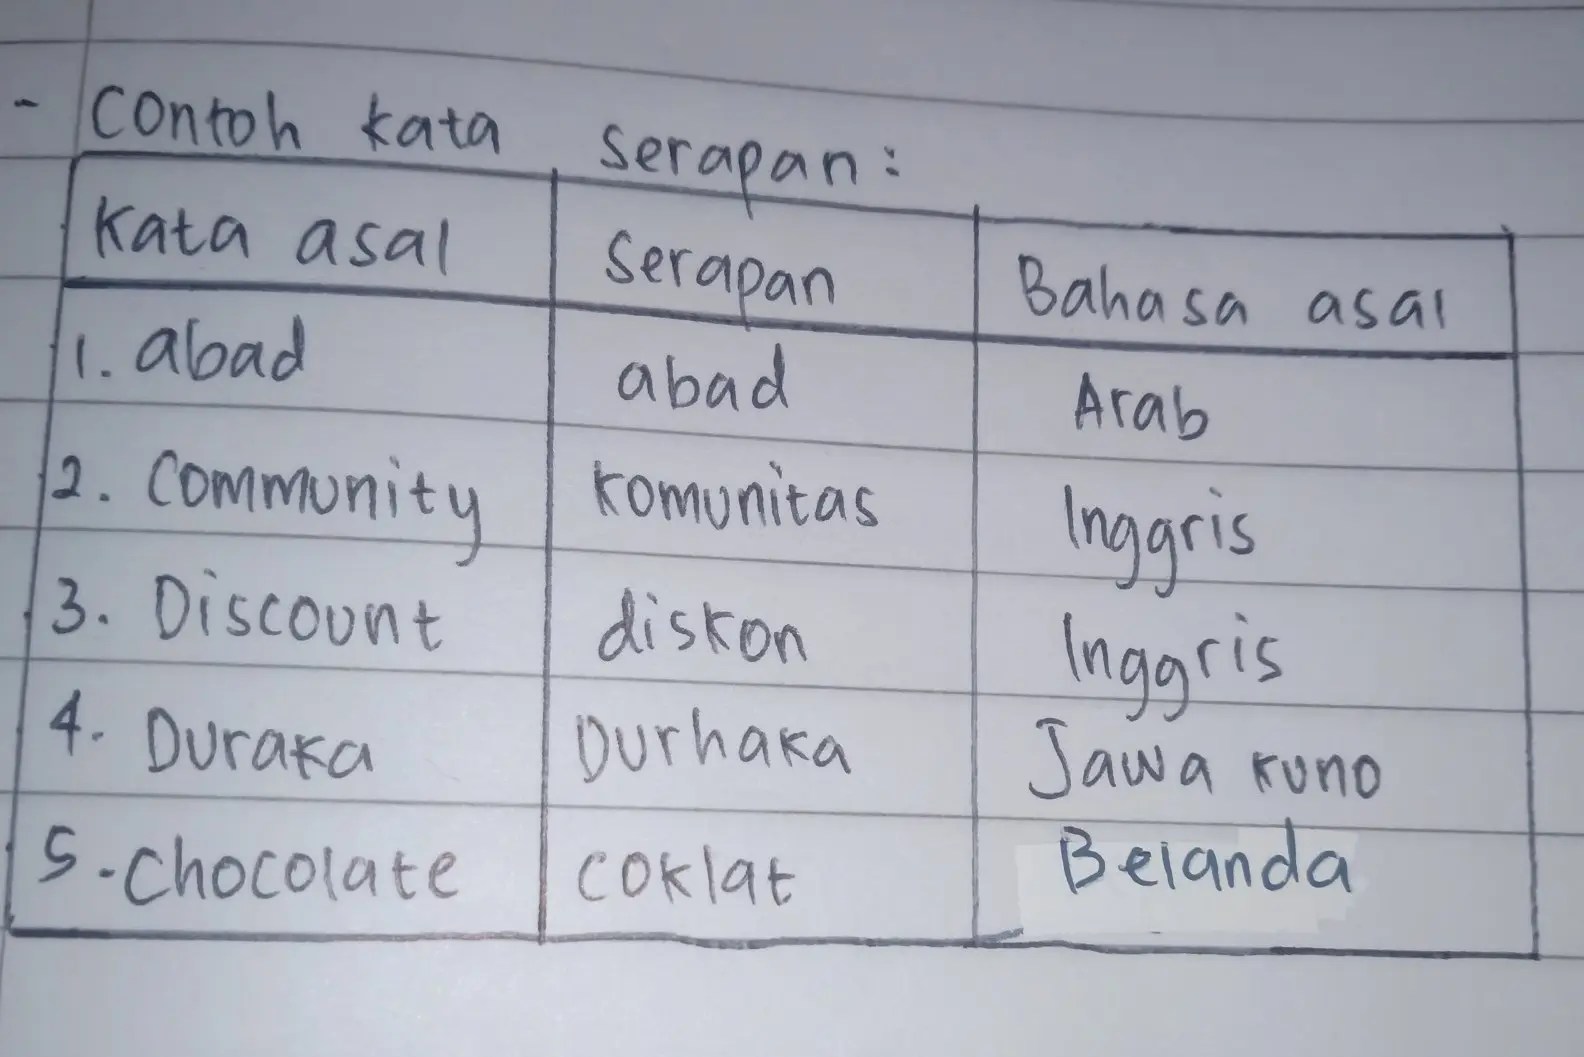 - Contoh kata serapan:
Kata asal serapan Bahasa asal
1. abad abad Arab
2. Community komunitas Inggris
3. Discount diskon Inggris
4. Duraka Durhaka Jawa kuno
5. Chocolate coklat Belanda